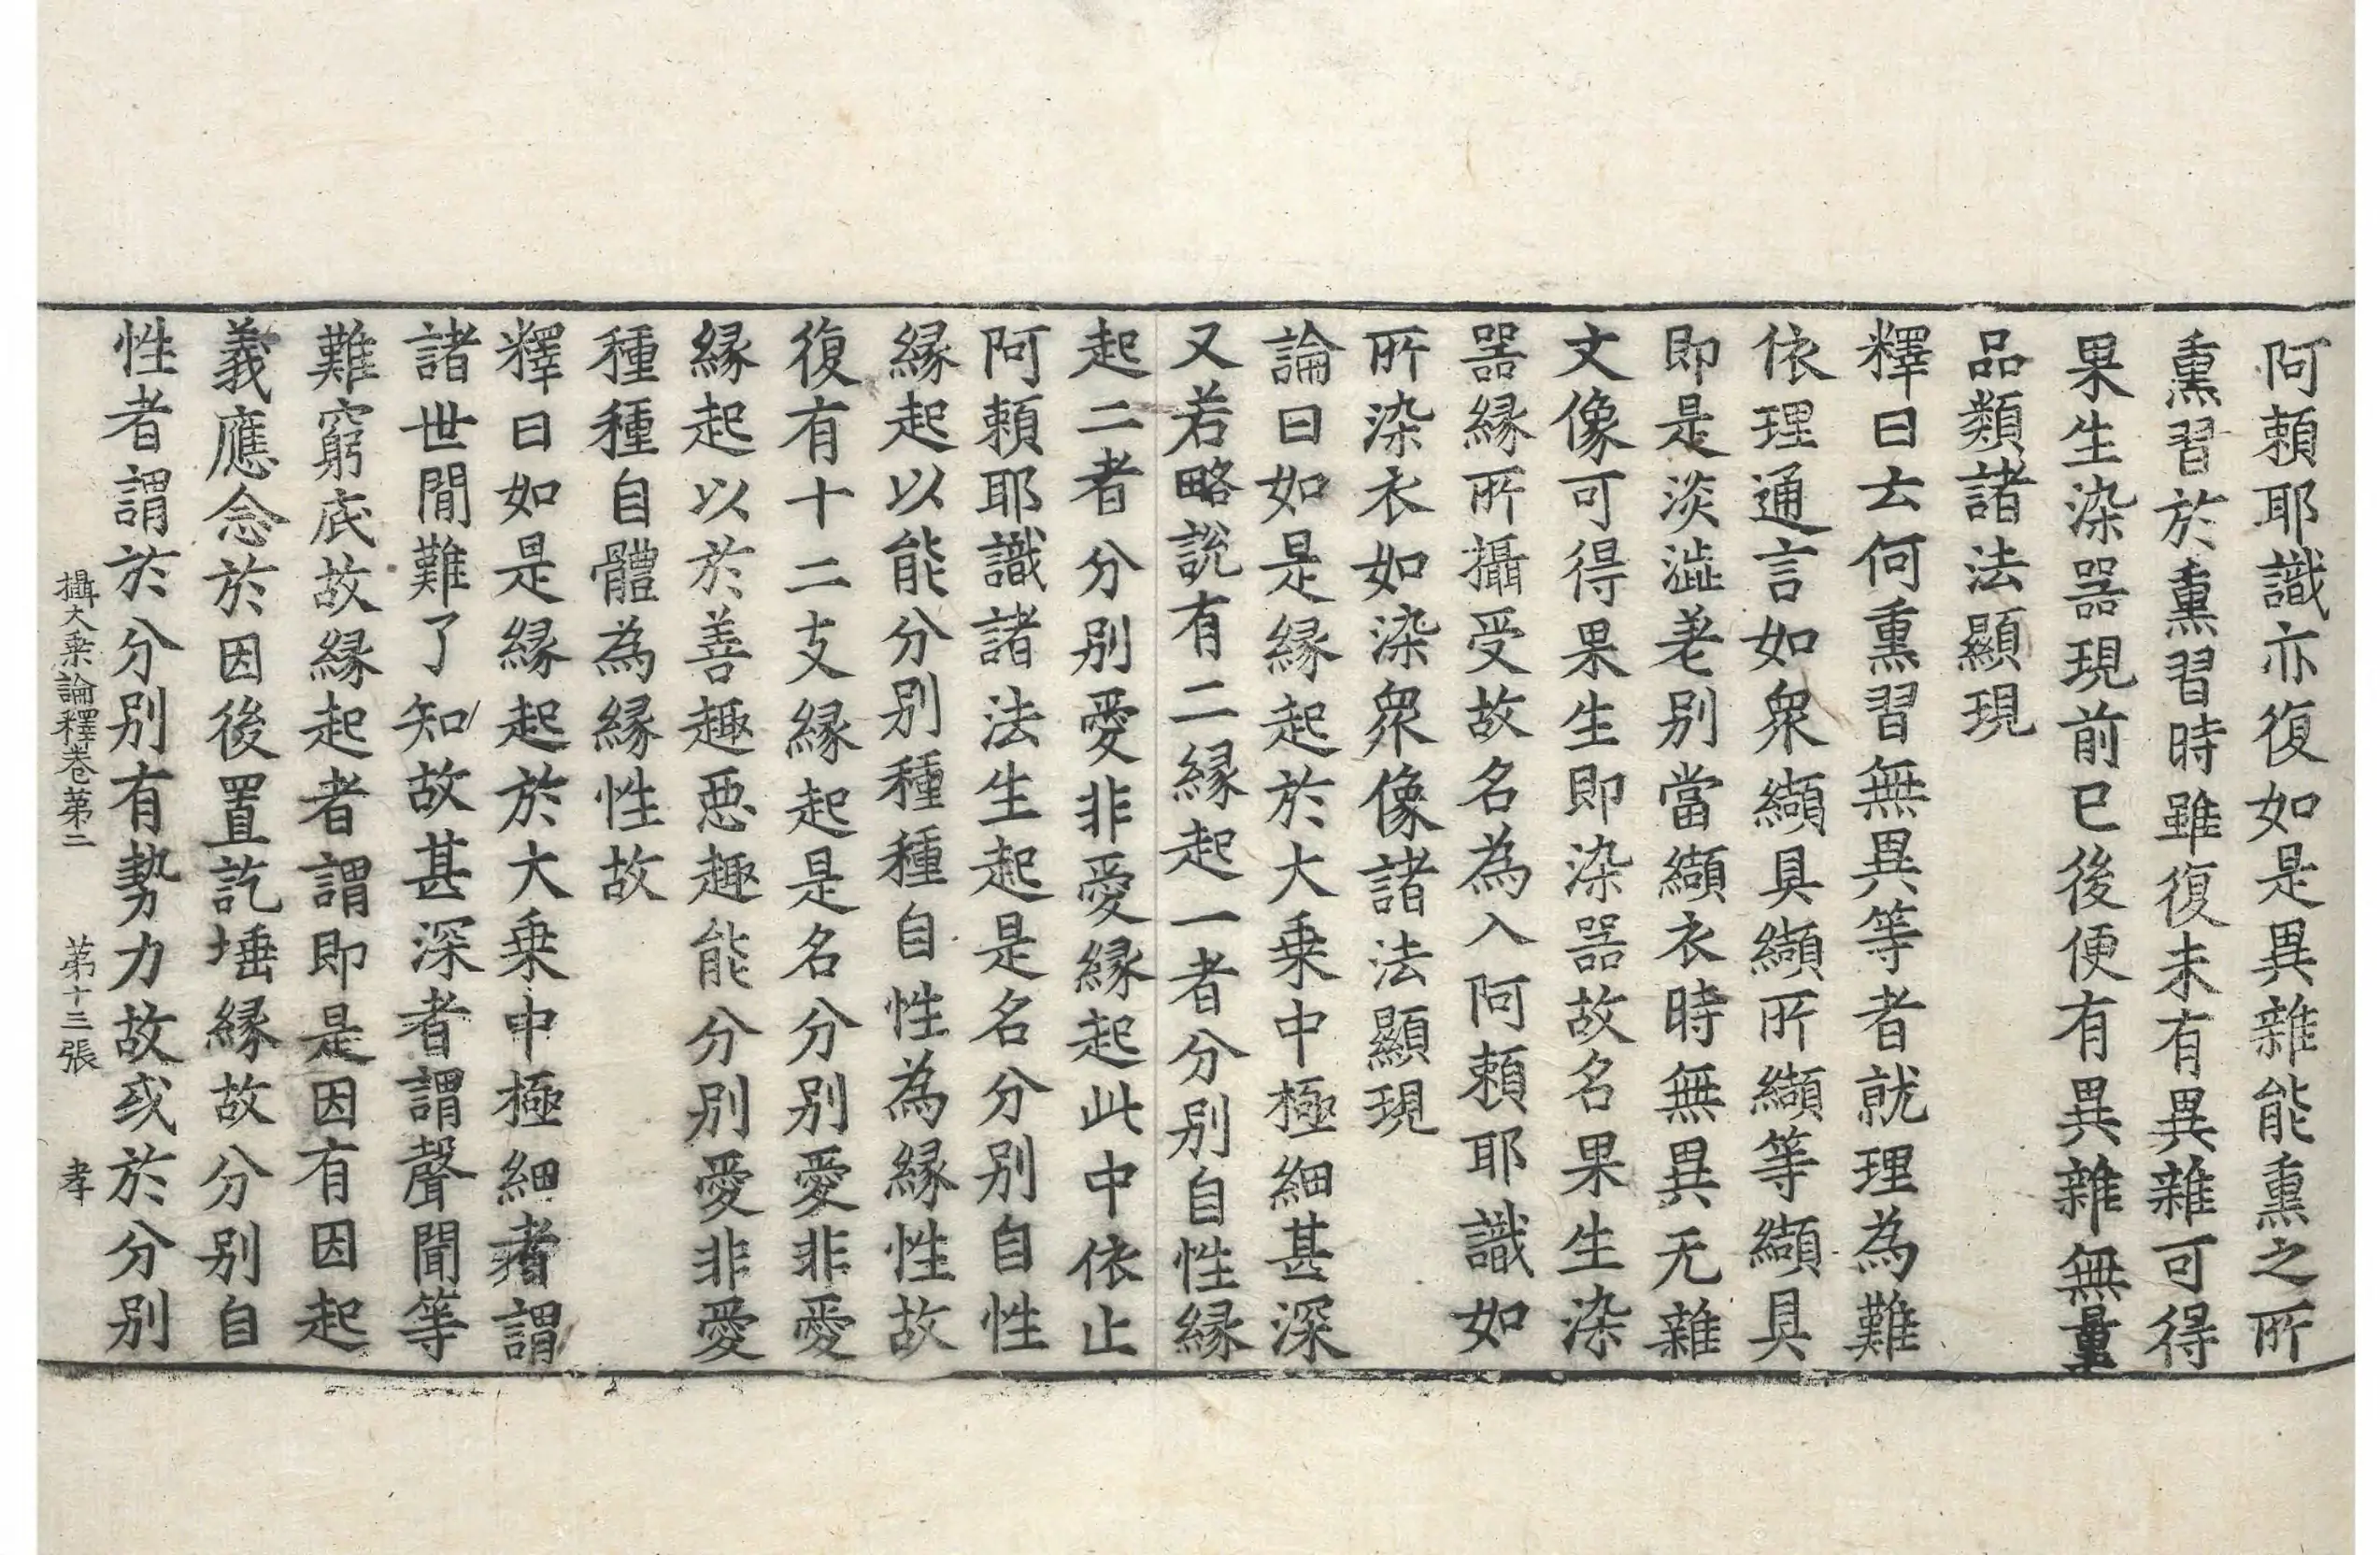 阿頼耶識亦復如是異雜能熏之所
熏習於熏習時雖復未有異雜可得
果生染器現前已後便有異雜無量
品類諸法顯現
釋曰云何熏習無異等者就理為難
依理通言如衆纈具纈所纈等纈具
即是淡澁差別當纈衣時無異无雜
文像可得果生即染器故名果生染
器縁所攝受故名為入阿頼耶識如
所染衣如染衆像諸法顯現
論曰如是縁起於大乗中極細甚深
又若略說有二縁起一者分別自性縁
起二者分別愛非愛縁起此中依止
阿頼耶識諸法生起是名分別自性
縁起以能分別種種自性為縁性故
復有十二支縁起是名分別愛非愛
縁起以於善趣惡趣能分別愛非愛
種種自體為縁性故
釋曰如是縁起於大乗中極細者謂
諸世間難了知故甚深者謂聲聞等
難窮底故縁起者謂即是因有因起
義應念於因後置訖埵縁故分別自
性者謂於分別有勢力故或於分別
攝大乗論釋卷第二 第十三張 孝